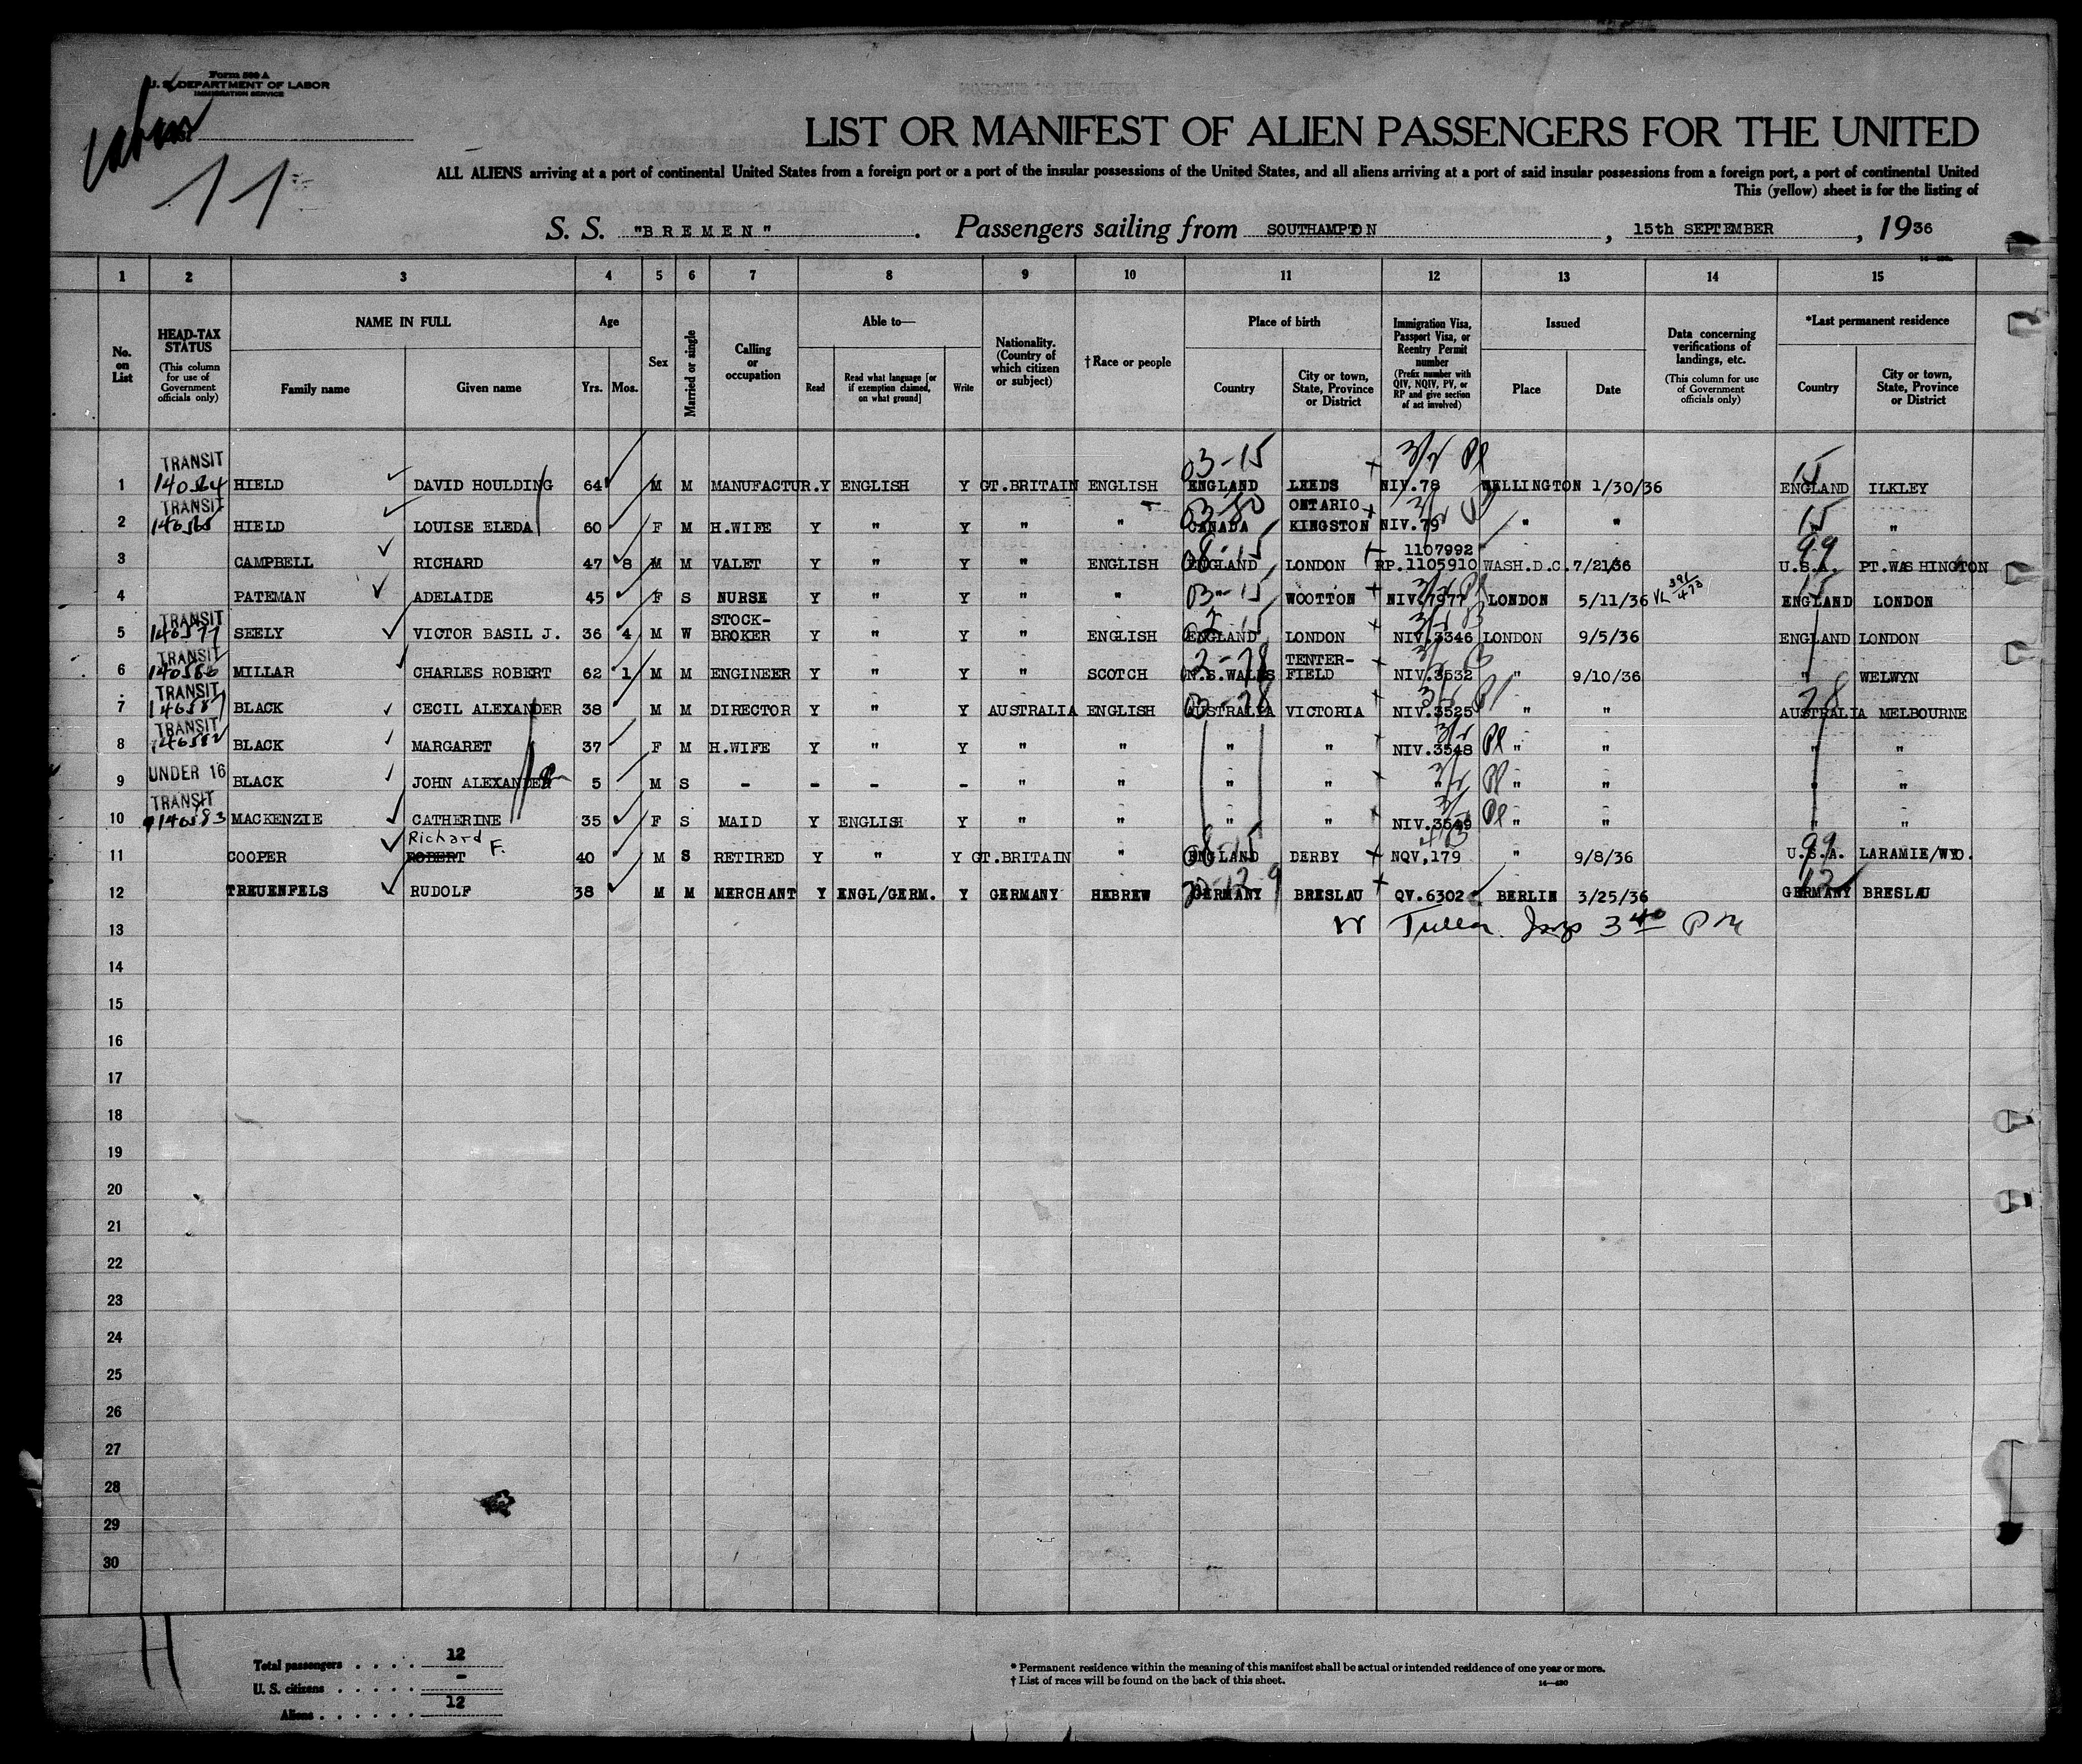 Form 500 A
U. S. DEPARTMENT OF LABOR
IMMIGRATION SERVICE
11
LIST OR MANIFEST OF ALIEN PASSENGERS FOR THE UNITED
ALL ALIENS arriving at a port of continental United States from a foreign port or a port of the insular possessions of the United States, and all aliens arriving at a port of said insular possessions from a foreign port, a port of continental United
This (yellow) sheet is for the listing of
S. S. "BREMEN". Passengers sailing from SOUTHAMPTON, 15th SEPTEMBER, 1936
1 2 3 4 5 6 7 8 9 10 11 12 13 14 15
No. on List
HEAD-TAX STATUS (This column for use of Government officials only)
NAME IN FULL
Family name
Given name
Age
Yrs. Mos.
Sex
Married or single
Calling or occupation
Able to—
Read
Read what language [or if exemption claimed, on what ground]
Write
Nationality. (Country of which citizen or subject)
† Race or people
Place of birth
Country
City or town, State, Province or District
Immigration Visa, Passport Visa, or Reentry Permit number (Prefix number with QIV, NQIV, PV, or RP and give section of act involved)
Issued
Place
Date
Data concerning verifications of landings, etc. (This column for use of Government officials only)
*Last permanent residence
Country
City or town, State, Province or District
TRANSIT 03-15 15
1 140564 HIELD DAVID HOULDING 64 M M MANUFACTUR. Y ENGLISH Y GT.BRITAIN ENGLISH ENGLAND LEEDS NIV.78 WELLINGTON 1/30/36 ENGLAND ILKLEY
TRANSIT 03-80 ONTARIO 15
2 140565 HIELD LOUISE ELEDA 60 F M H.WIFE Y " Y " " CANADA KINGSTON NIV.79 " " " "
1107992 99
3 CAMPBELL RICHARD 47 8 M M VALET Y " Y " ENGLISH ENGLAND LONDON RP.1105910 WASH.D.C. 7/21/36 U.S.A. PT.WASHINGTON
03-15 15
4 PATEMAN ADELAIDE 45 F S NURSE Y " Y " " WOOTTON NIV.7977 LONDON 5/11/36 VL 391/473 ENGLAND LONDON
TRANSIT STOCK-
5 140577 SEELY VICTOR BASIL J. 36 4 M W BROKER Y " Y " ENGLISH ENGLAND LONDON NIV.3346 LONDON 9/5/36 ENGLAND LONDON
TRANSIT TENTER-
6 MILLAR CHARLES ROBERT 62 1 M M ENGINEER Y " Y " SCOTCH N.S.WALES FIELD NIV.3532 " 9/10/36 " WELWYN
TRANSIT 03-28 28
7 BLACK CECIL ALEXANDER 38 M M DIRECTOR Y " Y AUSTRALIA ENGLISH AUSTRALIA VICTORIA NIV.3525 " " AUSTRALIA MELBOURNE
TRANSIT
8 140582 BLACK MARGARET 37 F M H.WIFE Y " Y " " " " NIV.3548 " " " "
9 UNDER 16 BLACK JOHN ALEXANDER 5 M S - - - - " " " " " " " " "
TRANSIT
10 140583 MACKENZIE CATHERINE 35 F S MAID Y ENGLISH Y " " " " NIV.3549 " " " "
Richard F. 99
11 COOPER ROBERT 40 M S RETIRED Y " Y GT.BRITAIN " ENGLAND DERBY NQV,179 " 9/8/36 U.S.A. LARAMIE/WYO.
12
12 TREUENFELS RUDOLF 38 M M MERCHANT Y ENGL/GERM. Y GERMANY HEBREW GERMANY BRESLAU QV.6302 BERLIN 3/25/36 GERMANY BRESLAU
13 3 40 PM
14
15
16
17
18
19
20
21
22
23
24
25
26
27
28
29
30
H
Total passengers . . . . 12
U. S. citizens . . . . . -
Aliens . . . . . . 12
* Permanent residence within the meaning of this manifest shall be actual or intended residence of one year or more.
† List of races will be found on the back of this sheet.
14—430